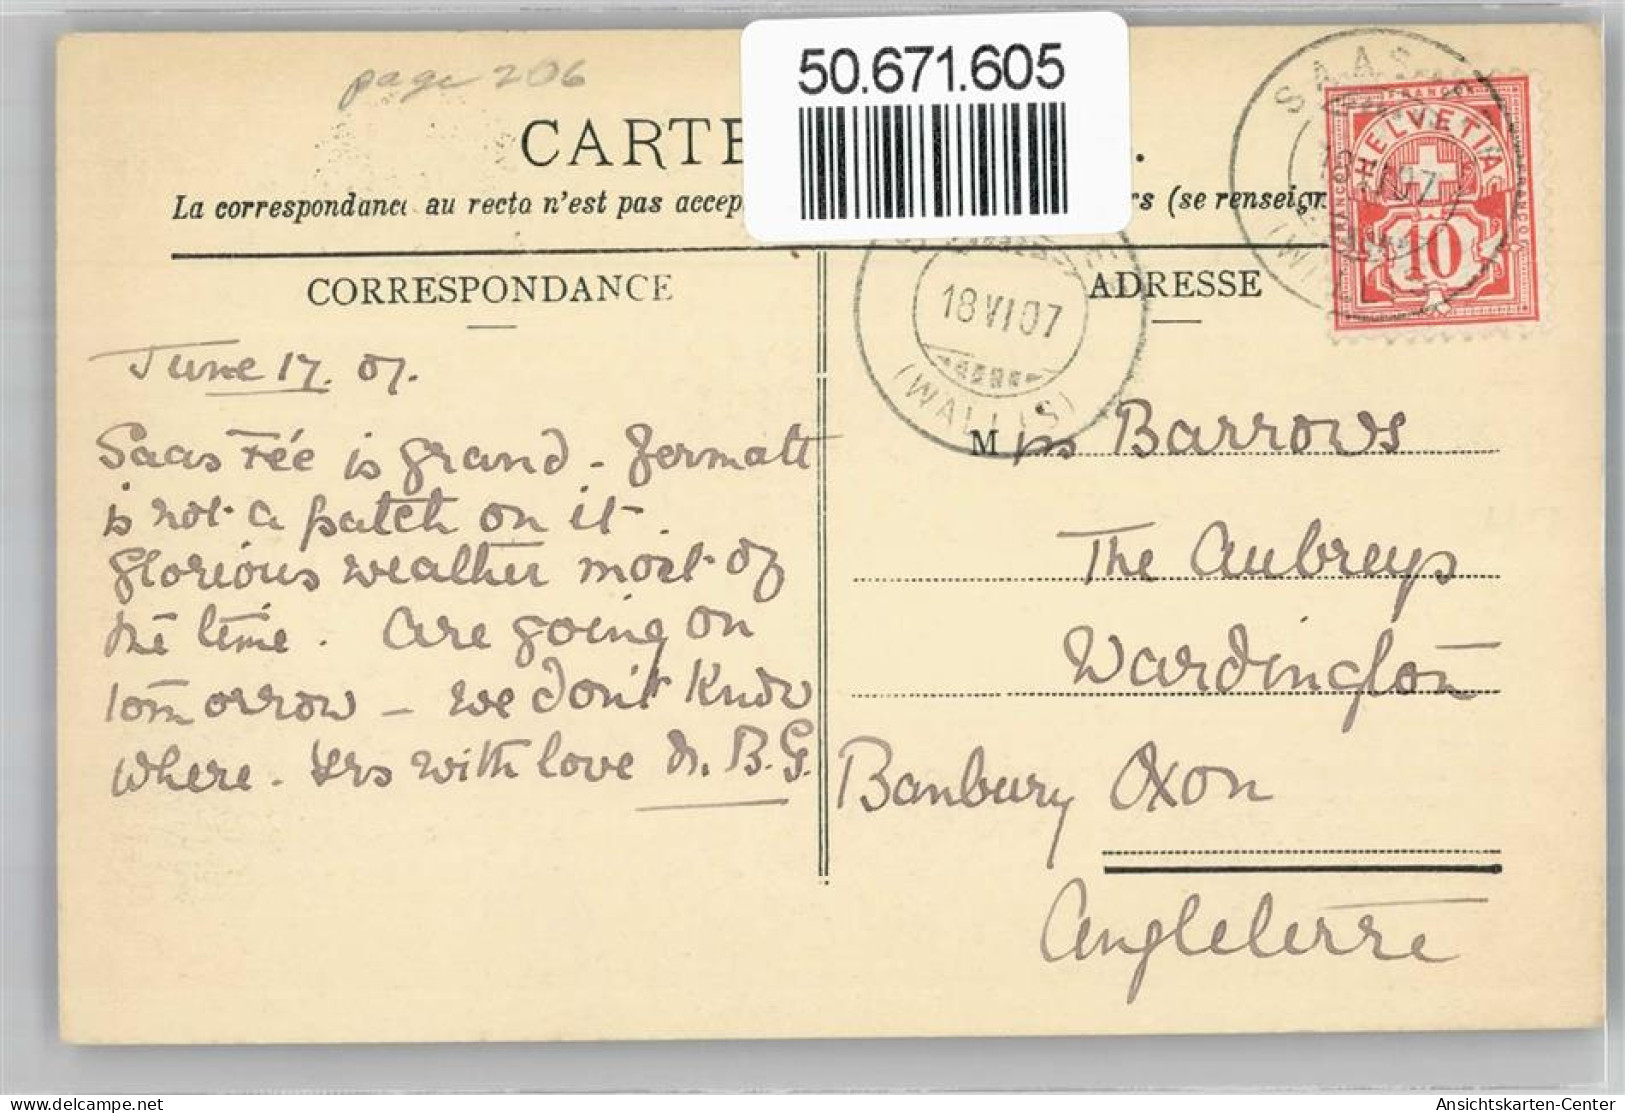 page 206
50.671.605
CARTE
La correspondance au recto n'est pas accep rs (se renseign
CORRESPONDANCE
ADRESSE
SAAS
HELVETIA
FRANCO
10
18 VI 07
(WALLIS)
June 17. 07.
Saas Fée is grand - Zermatt
is not a patch on it.
Glorious weather most of
the time. Are going on
tomorrow - we don't know
where. Yrs with love M. B. G.
Mrs Barrows
The Aubreys
Wardington
Banbury Oxon
Angleterre
delcampe.net
Ansichtskarten-Center